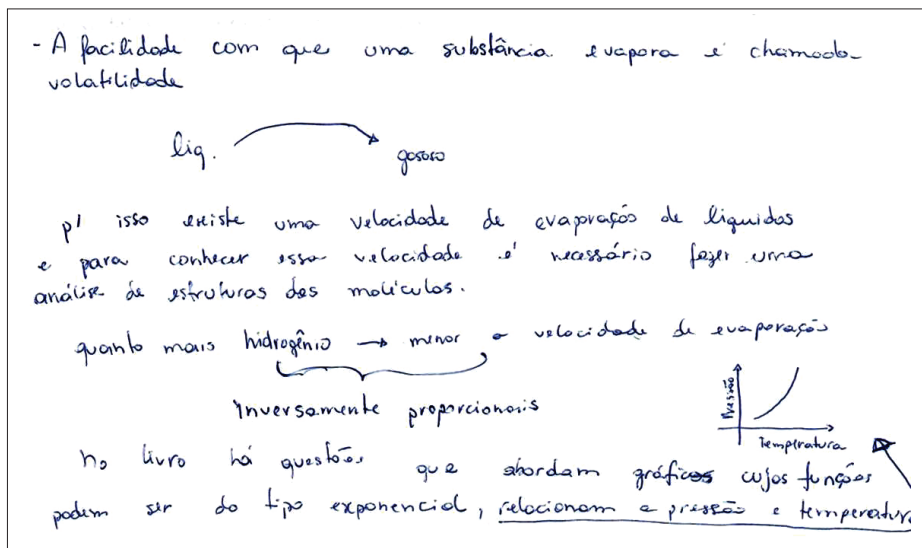 - A facilidade com que uma substância evapora é chamada
volatilidade
liq. gasoso
p/ isso existe uma velocidade de evaporação de líquidos
e para conhecer essa velocidade é necessário fazer uma
análise de estruturas das moléculas.
quanto mais hidrogênio → menor a velocidade de evaporação
inversamente proporcionais
Pressão
Temperatura
no livro há questões que abordam gráficos cujos funções
podem ser do tipo exponencial, relacionam a pressão e temperatura